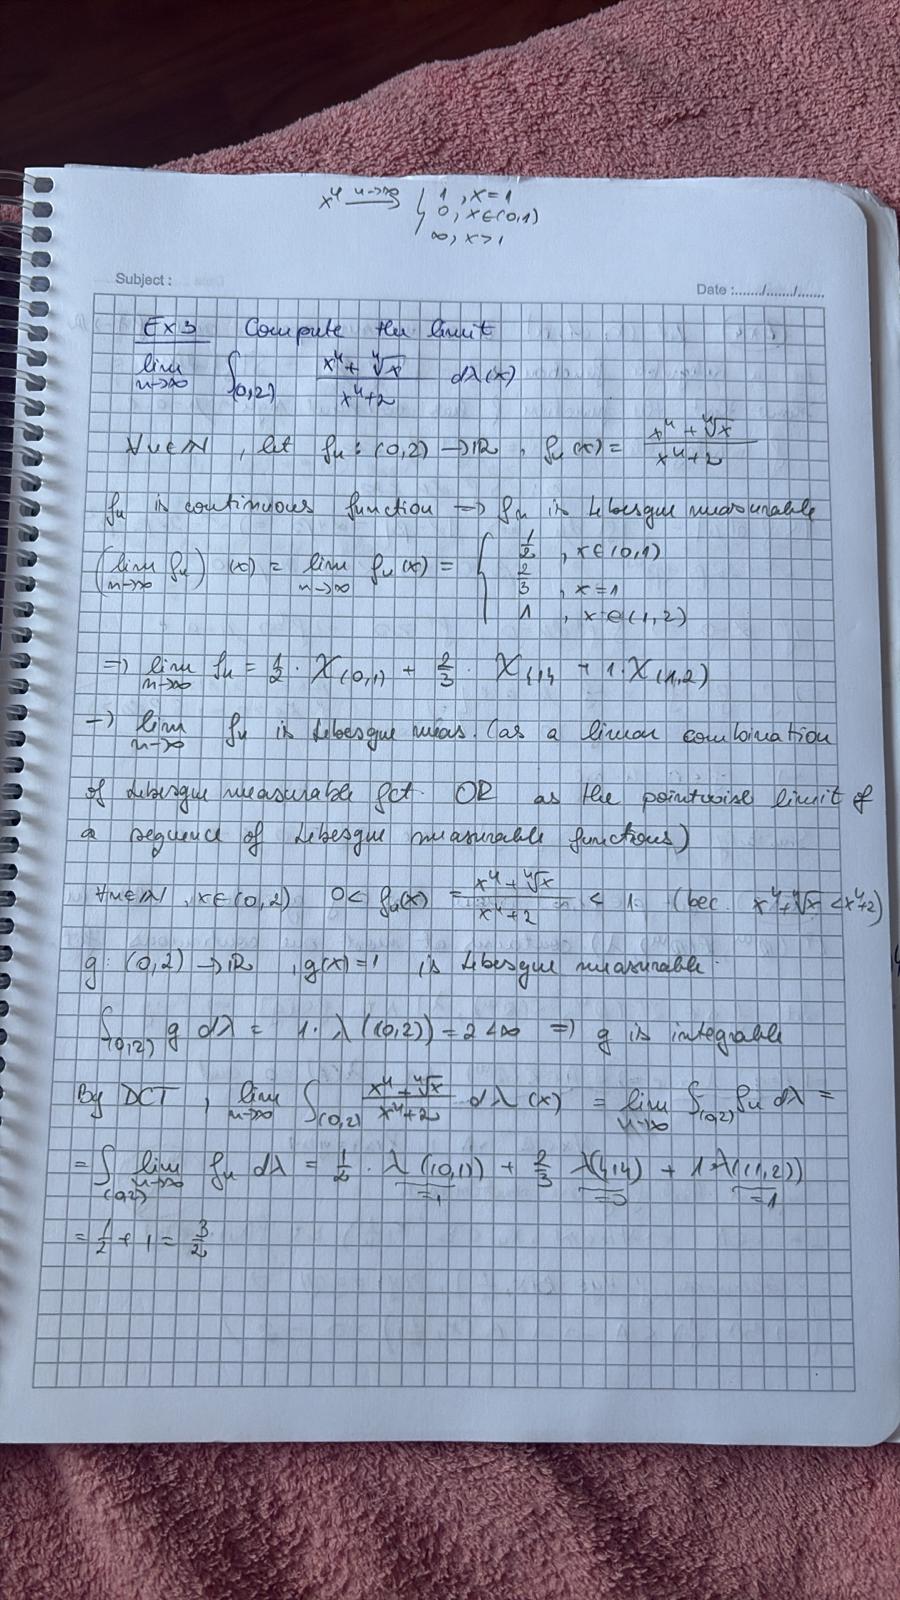 xⁿ —n→∞→ { 1 , x=1
0, x∈(0,1)
∞, x>1
Subject :
Date :......./......./.......
Ex 3 Compute the limit
lim_{n→∞} ∫_{(0,2)} (xⁿ + ⁿ√x)/(xⁿ+2) dλ(x)
∀n∈ℕ, let fₙ : (0,2) → ℝ, fₙ(x) = (xⁿ + ⁿ√x)/(xⁿ+2)
fₙ is continuous function => fₙ is Lebesgue measurable
(lim_{n→∞} fₙ)(x) = lim_{n→∞} fₙ(x) = { 1/2 , x∈(0,1)
2/3 , x=1
1 , x∈(1,2)
=> lim_{n→∞} fₙ = 1/2 · χ_{(0,1)} + 2/3 · χ_{{1}} + 1·χ_{(1,2)}
→ lim_{n→∞} fₙ is Lebesgue meas. (as a linear combination
of Lebesgue measurable fct. OR as the pointwise limit of
a sequence of Lebesgue measurable functions)
∀n∈ℕ, x∈(0,2) 0< fₙ(x) = (xⁿ + ⁿ√x)/(xⁿ+2) < 1 (bec. xⁿ+ⁿ√x < xⁿ+2)
g : (0,2) → ℝ, g(x)=1 is Lebesgue measurable.
∫_{(0,2)} g dλ = 1·λ((0,2)) = 2 <∞ => g is integrable
By DCT, lim_{n→∞} ∫_{(0,2)} (xⁿ + ⁿ√x)/(xⁿ+2) dλ(x) = lim_{n→∞} ∫_{(0,2)} fₙ dλ =
= ∫_{(0,2)} lim_{n→∞} fₙ dλ = 1/2 · λ((0,1)) + 2/3 λ({1}) + 1·λ((1,2))
=1 =0 =1
= 1/2 + 1 = 3/2